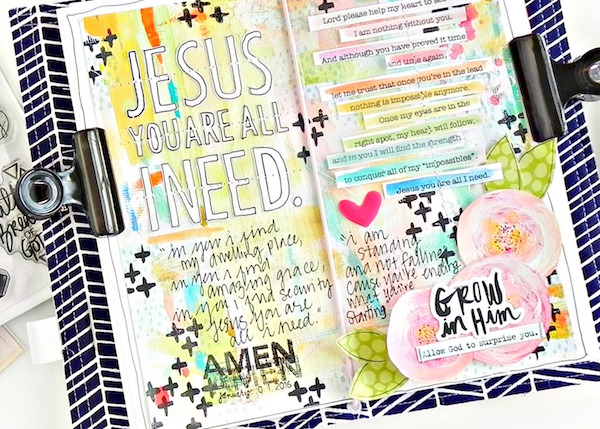 JESUS
YOU ARE ALL
I NEED.
"in you i find
my dwelling place,
in you i find
amazing grace,
in you i find security
Jesus you are
all i need."
AMEN
January 10, 2016
Lord please help my heart to see
I am nothing without you.
And although you have proved it time
and time again,
let me trust that once you're in the lead
nothing is impossible anymore.
Once my eyes are in the
right spot, my heart will follow,
and in you I will find the strength
to conquer all of my "impossibles"
Jesus you are all I need.
"i am
standing
and not falling
cause you're ending
what you're
starting"
GROW
in Him
Allow God to surprise you.